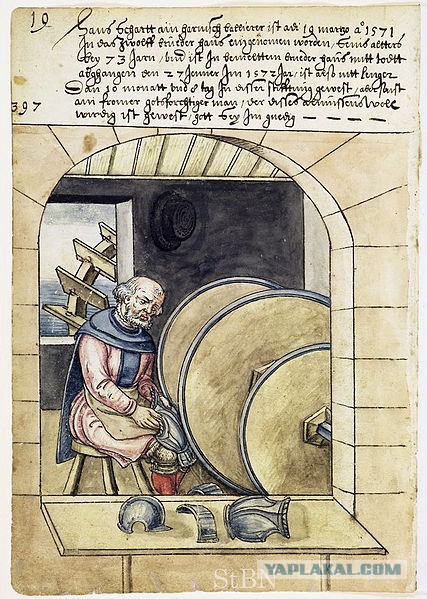 19
Hans Schartt ain harnisch ballierer ist adi 19 marzo aº 1571
In das zwolff brueder haus eingenomen worden, seins alters
bey 73 Jarn, und ist In bemeltem brueder haus mitt todtt
abgangen den 27 Jenner Im 1572 Jar, ist also nitt lenger
Dan 10 monatt und 8 tag In disser stifftung gewest, aber sunst
ain fromer gotsforchtiger man, der disses wol
wirdig ist gewest, gott sey Im gnedig
397
StBN
YAPLAKAL.COM